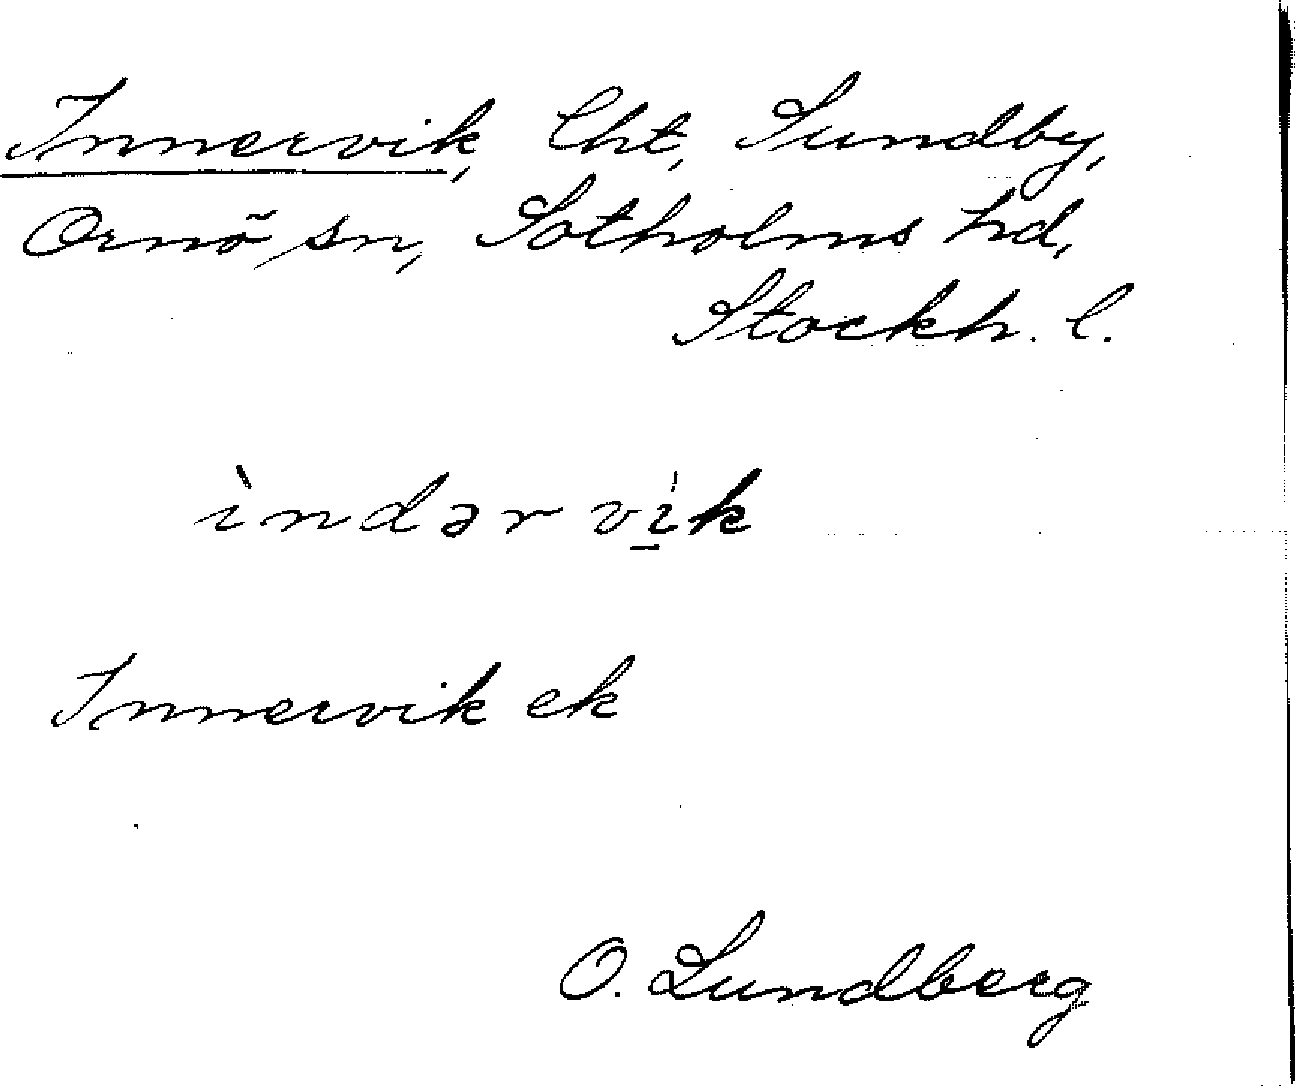 Innervik, lht, Sundby,
Ornö sn, Sotholms hd,
Stockh. l.
ìndər vi̱k
Innervik ek
O. Lundberg